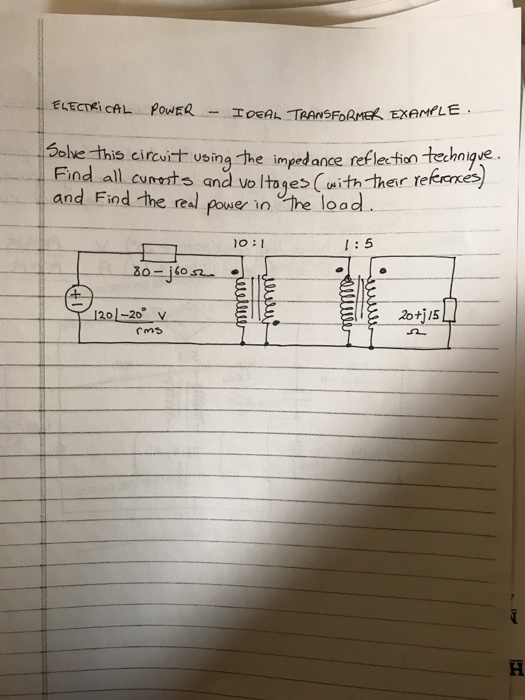 ELECTRICAL POWER - IDEAL TRANSFORMER EXAMPLE.
Solve this circuit using the impedance reflection technique.
Find all currents and voltages (with their references)
and Find the real power in the load.
10:1 1:5
80-j60Ω
+
-
120∠-20° V
rms
20+j15
Ω
H